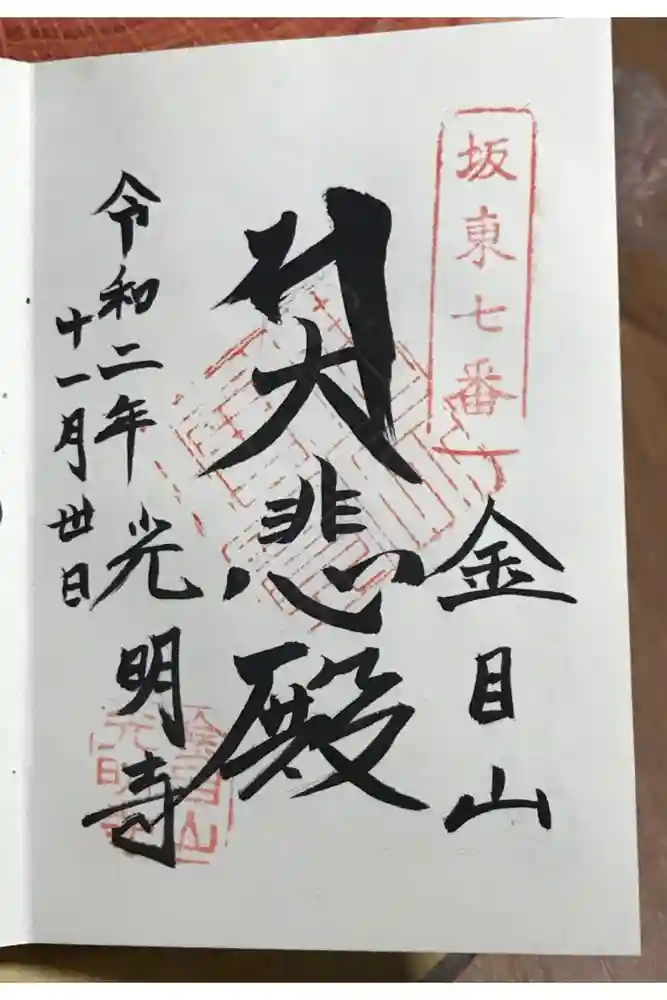 坂東七番
金目山
大悲殿
令和二年
十一月丗日
光明寺